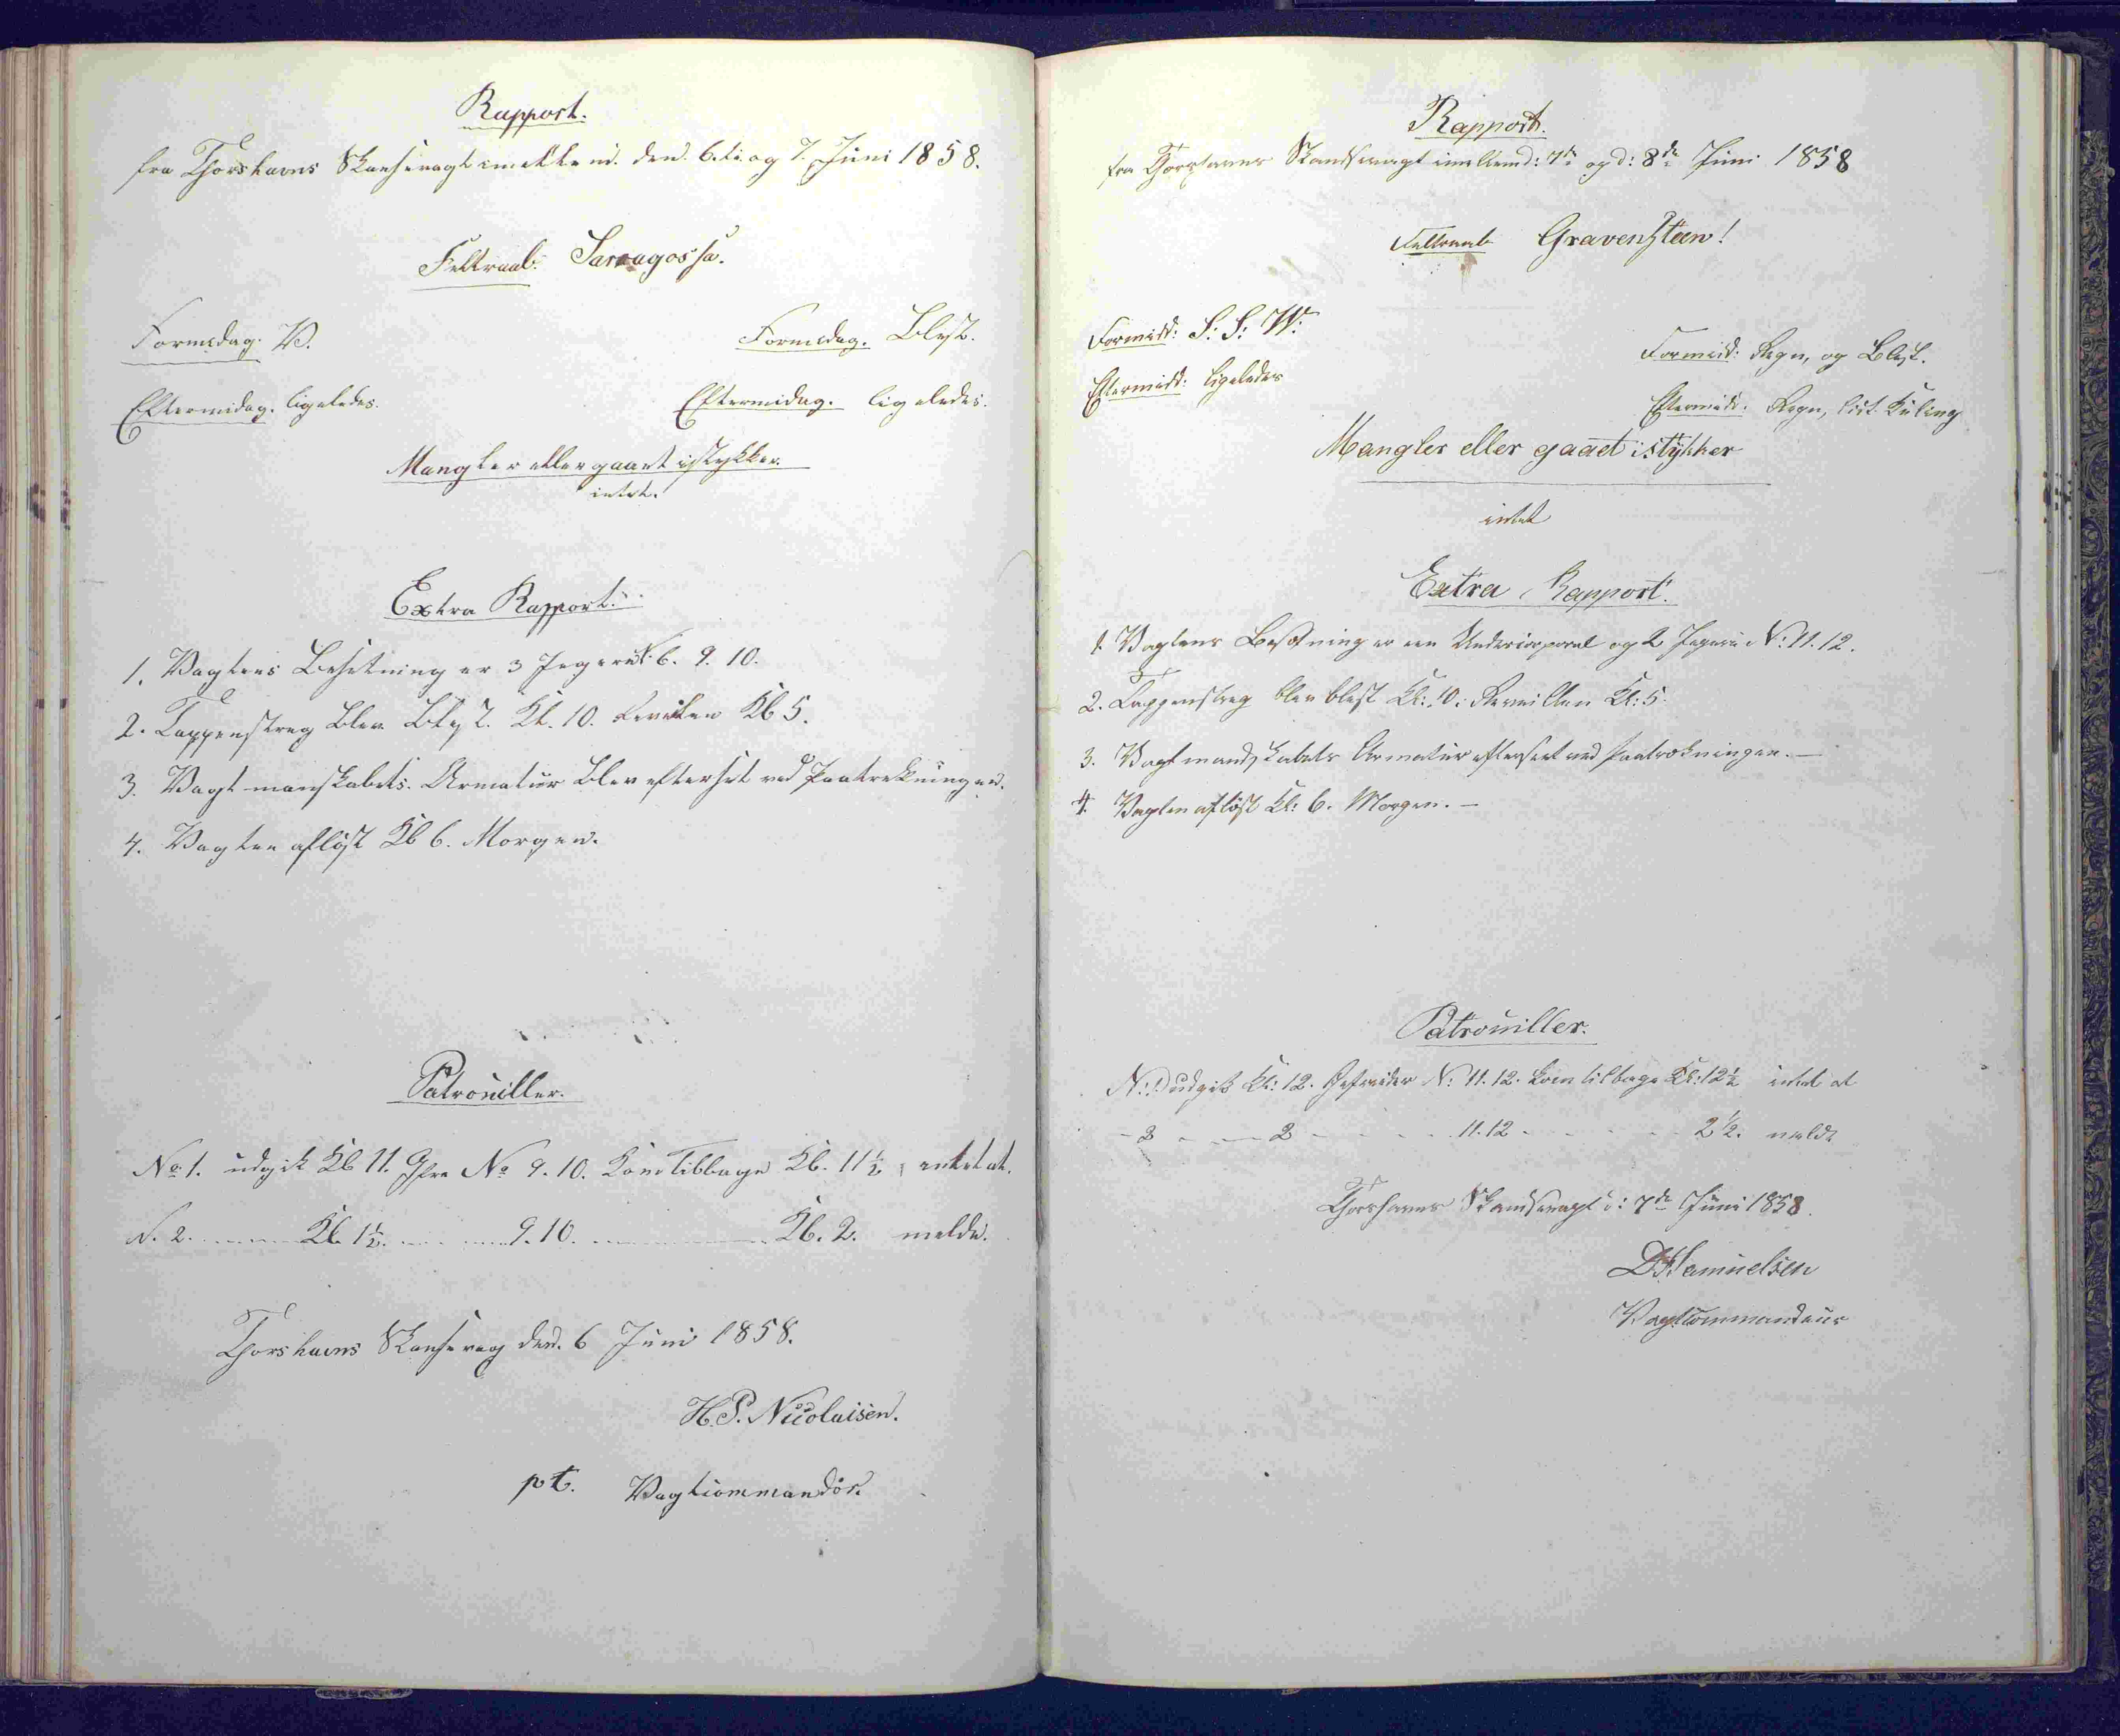 Rapport.
fra Thorshavns Skansevagt imellem. den. 6.te og 7. Juni 1858.
Feltraab. Sarragossa.
Formidag. V. Formidag. Blæst.
Eftermidag. ligeledes. Eftermidag. ligeledes.
Mangler eller gaaet istykker.
intet.
Extra Rapport.
1. Vagtens Besetning er 3 Jegere N. 6. 9. 10.
2. Tappenstreg Blev Blest. Kl. 10. Revelen Kl 5.
3. Vagt manskabets. Armatur Blev efterset ved Paatrekningen.
4. Vagten afløst Kl 6. Morgen.
Patrouiller.
No 1. udgik Kl 11. Gefre No 9. 10. Kom Tilbage Kl. 11½ intet at.
N. 2. Kl. 1½. 9. 10. Kl. 2. melde.
Thorshavns Skansevag den. 6 Juni 1858.
H. P. Nicolaisen.
pt. Vagtcommandør.
Rapport.
fra Thorshavns Skandsevagt imellem d: 7de og d: 8de Juni 1858
Feltraab Gravensteen!
Formidd: S: S: W:
Formidd: Regn, og Blæst.
Eftermidd: ligeledes
Eftermidd: Regn, Kuling
Mangler eller gaaet istykker
intet
Extra Rapport.
1. Vagtens Besætning er een Undercorporal og 2 Jegere N: 11. 12.
2. Tappenstreg blev blest Kl: 10. Reveillen Kl: 5.
3. Vagtmandskabets Armatur efterseet ved Paatrækningen. —
4. Vagten afløst Kl: 6. Morgen. —
Patrouiller.
N: 1 udgik Kl: 12. Gefreider N: 11. 12. kom tilbage Kl: 12½ intet at
- 2 - - - 2 - - - - 11. 12 - - - - - 2½. melde
Thorshavns Skandsevagt d: 7de Juni 1858.
D Samuelsen
Vagtcommandeur